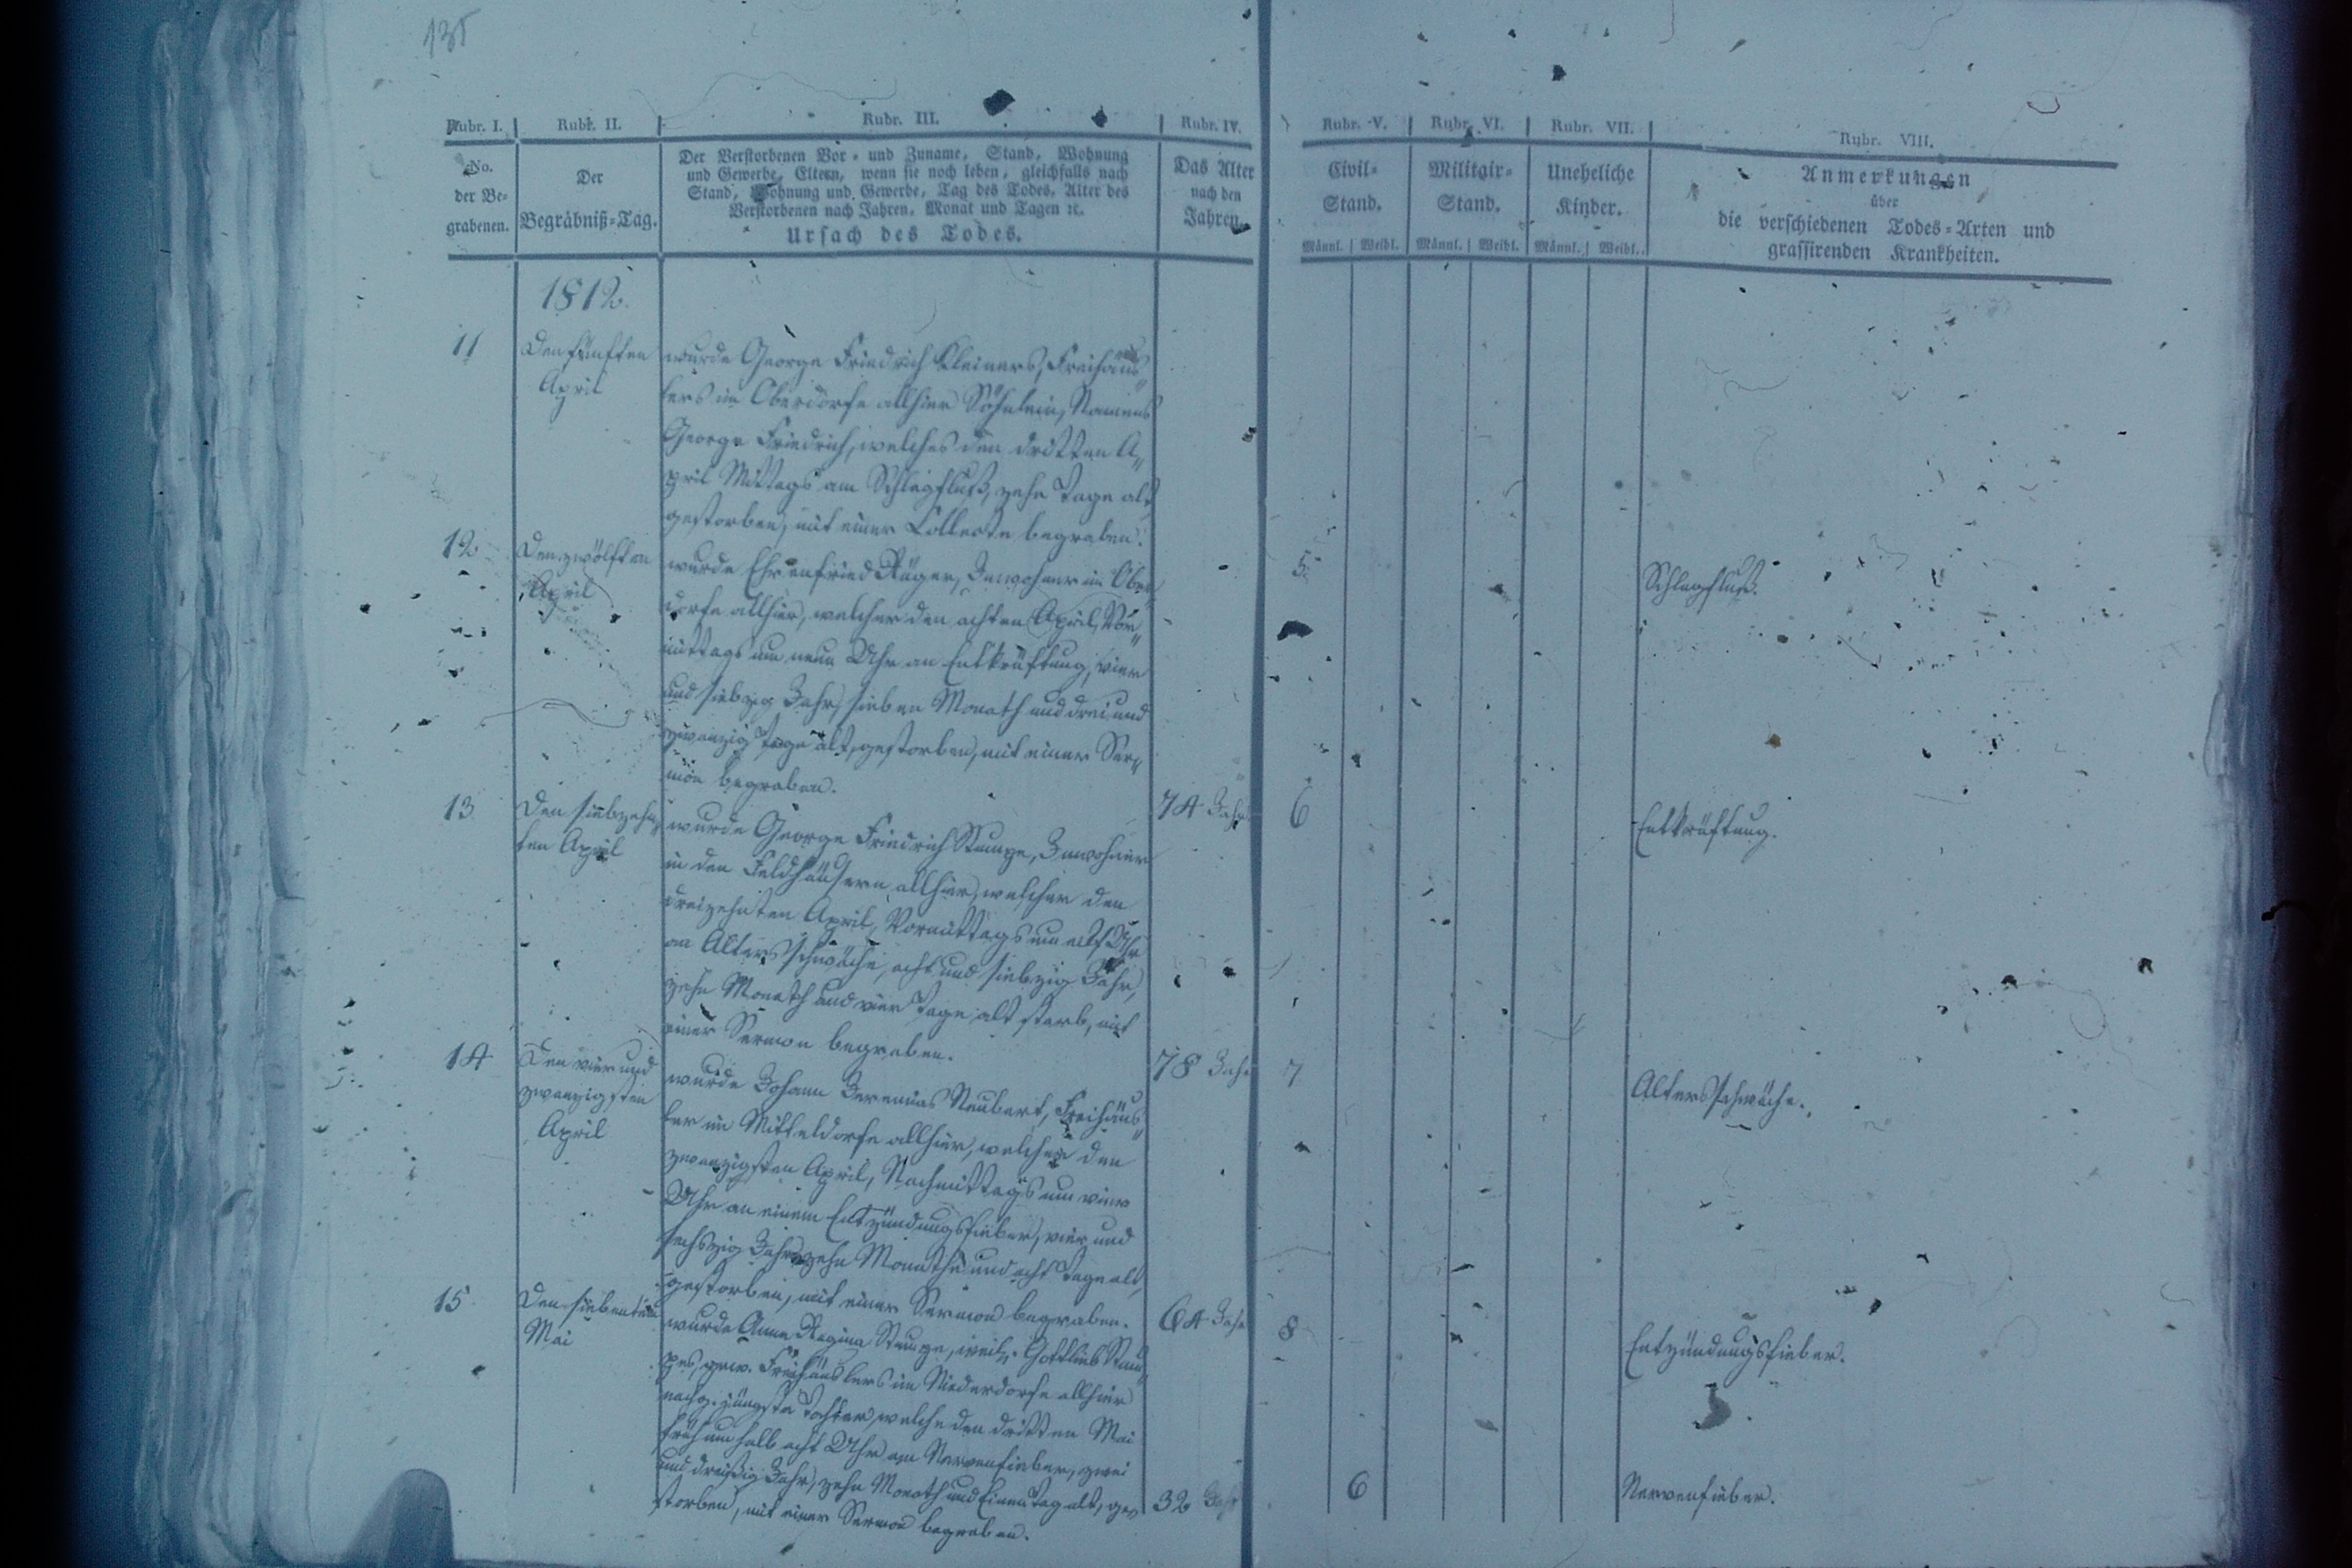 135
Rubr. I. Rubr. II. Rubr. III. Rubr. IV. Rubr. V. Rubr. VI. Rubr. VII. Rubr. VIII.
No.
der Be-
grabenen.
Der
Begräbniß-Tag.
Der Verstorbenen Vor- und Zuname, Stand, Wohnung
und Gewerbe, Eltern, wenn sie noch leben, gleichfalls nach
Stand, Wohnung und Gewerbe, Tag des Todes, Alter des
Verstorbenen nach Jahren, Monat und Tagen ꝛc.
Ursach des Todes.
Das Alter
nach den
Jahren.
Civil-
Stand.
Männl. Weibl.
Militair-
Stand.
Männl. Weibl.
Uneheliche
Kinder.
Männl. Weibl.
Anmerkungen
über
die verschiedenen Todes-Arten und
grassirenden Krankheiten.
1812.
11
Den fünften
April
wurde George Friedrich Kleiners, Freihäus„
lers im Oberdorfe allhier Söhnlein, Namens
George Friedrich, welches den dritten A„
pril Mittags am Schlagfluß, zehn Tage alt
gestorben, mit einer Collecte begraben.
5.
Schlagfluß.
12
Den zwölften
April
wurde Ehrenfried Inwohner im Ober„
dorfe allhier, welcher den achten April, Vor„
mittags um neun Uhr an Entkräftung, vier
und siebzig Jahr, sieben Monath und drei und
zwanzig Tage alt, gestorben, mit einer Ser„
mon begraben.
74 Jahr
6
Entkräftung.
13
Den siebzehn„
ten April
wurde George Friedrich Stumpe, Inwohner
in den Feldhäusern allhier, welcher den
dreizehnten April, Vormittags um Uhr
an Altersschwäche, acht und siebzig Jahr,
zehn Monath und vier Tage alt starb, mit
einer Sermon begraben.
78 Jahr
7
Altersschwäche.
14
Den vier und
zwanzigsten
April
wurde Johann Jeremias Neubert, Freihäus„
ler im Mitteldorfe allhier, welcher den
zwanzigsten April, Nachmittags um vier
Uhr an einem Entzündungsfieber, vier und
sechszig Jahr, zehn Monathe und acht Tage alt,
gestorben, mit einer Sermon begraben.
64 Jahr
8
Entzündungsfieber.
15
Den siebenten
Mai
wurde Anna Regina Stumpe, weil. Gottlieb Stum„
pes, gew. Freihäuslers im Niederdorfe allhier
nachg. jüngste Tochter, welche den dritten Mai
früh um halb acht Uhr am Nervenfieber, zwei
und dreißig Jahr, zehn Monath und Einen Tag alt, ge„
storben, mit einer Sermon begraben.
32 Jahr
6
Nervenfieber.